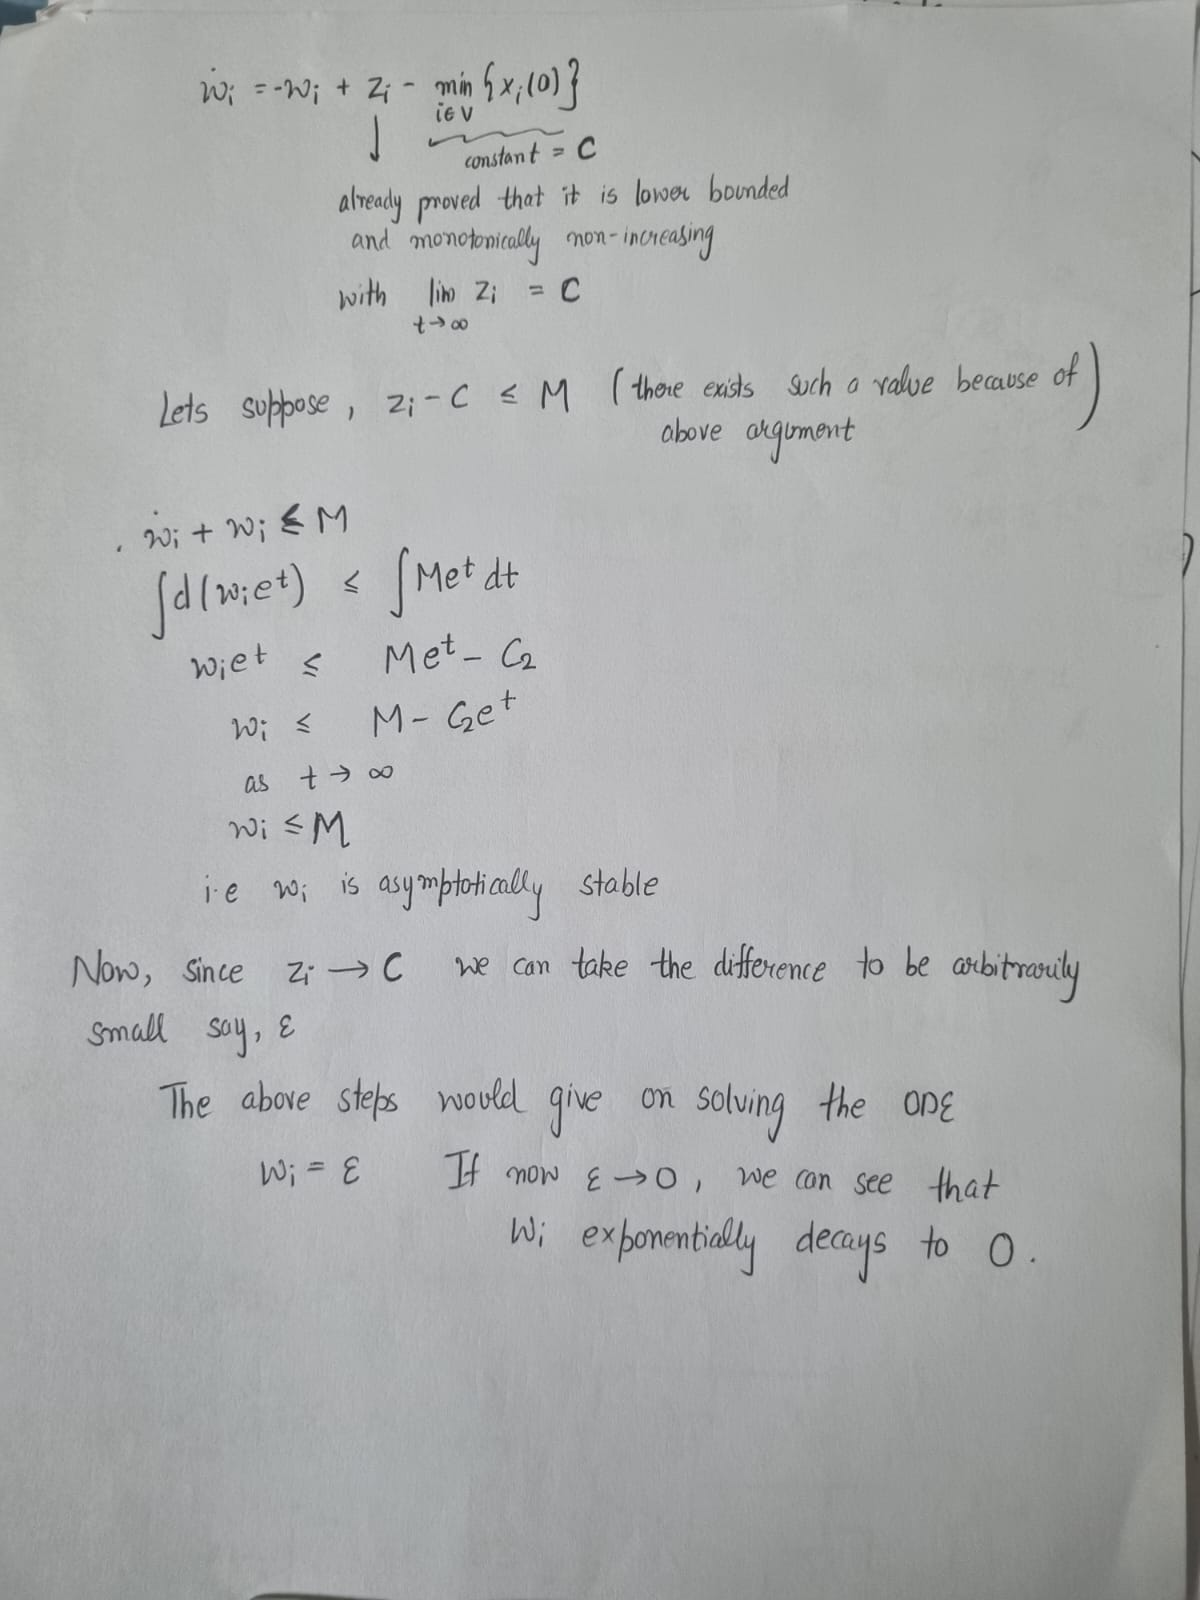 ẇᵢ = -wᵢ + zᵢ - min {xᵢ(0)}
i∈V
↓ constant = C
already proved that it is lower bounded
and monotonically non-increasing
with lim zᵢ = C
t→∞
Lets suppose, zᵢ - C ≤ M (there exists such a value because of
above argument)
ẇᵢ + wᵢ ≤ M
∫d(wᵢeᵗ) ≤ ∫Meᵗ dt
wᵢeᵗ ≤ Meᵗ - C₂
wᵢ ≤ M - C₂eᵗ
as t → ∞
wᵢ ≤ M
i.e wᵢ is asymptotically stable
Now, since zᵢ → C we can take the difference to be arbitrarily
small say, ε
The above steps would give on solving the ODE
wᵢ = ε If now ε → 0, we can see that
wᵢ exponentially decays to 0.